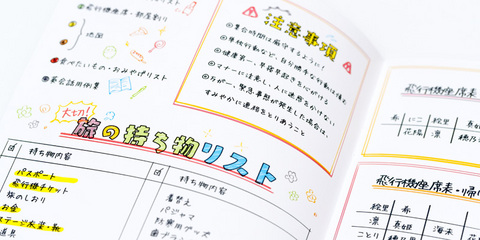 飛行機座席・部屋割り
地図
食べたいもの・おみやげリスト
英会話用例集
注意事項
集合時間は厳守するように!
単独行動など、自分勝手な行動は慎む
健康第一、早寝早起きを心がける
マナーに注意し、人に迷惑をかけない
万が一、緊急事態が発生した場合は、
すみやかに連絡をとりあうこと
大切!
旅の持ち物リスト
持ち物内容
パスポート
飛行機チケット
旅のしおり
お金
持ち物内容
着替え
パジャマ
飛行機座席表
希 にこ 絵里
花陽 凛 真姫
飛行機座席表・帰り
絵里 希
凛 真姫 海未